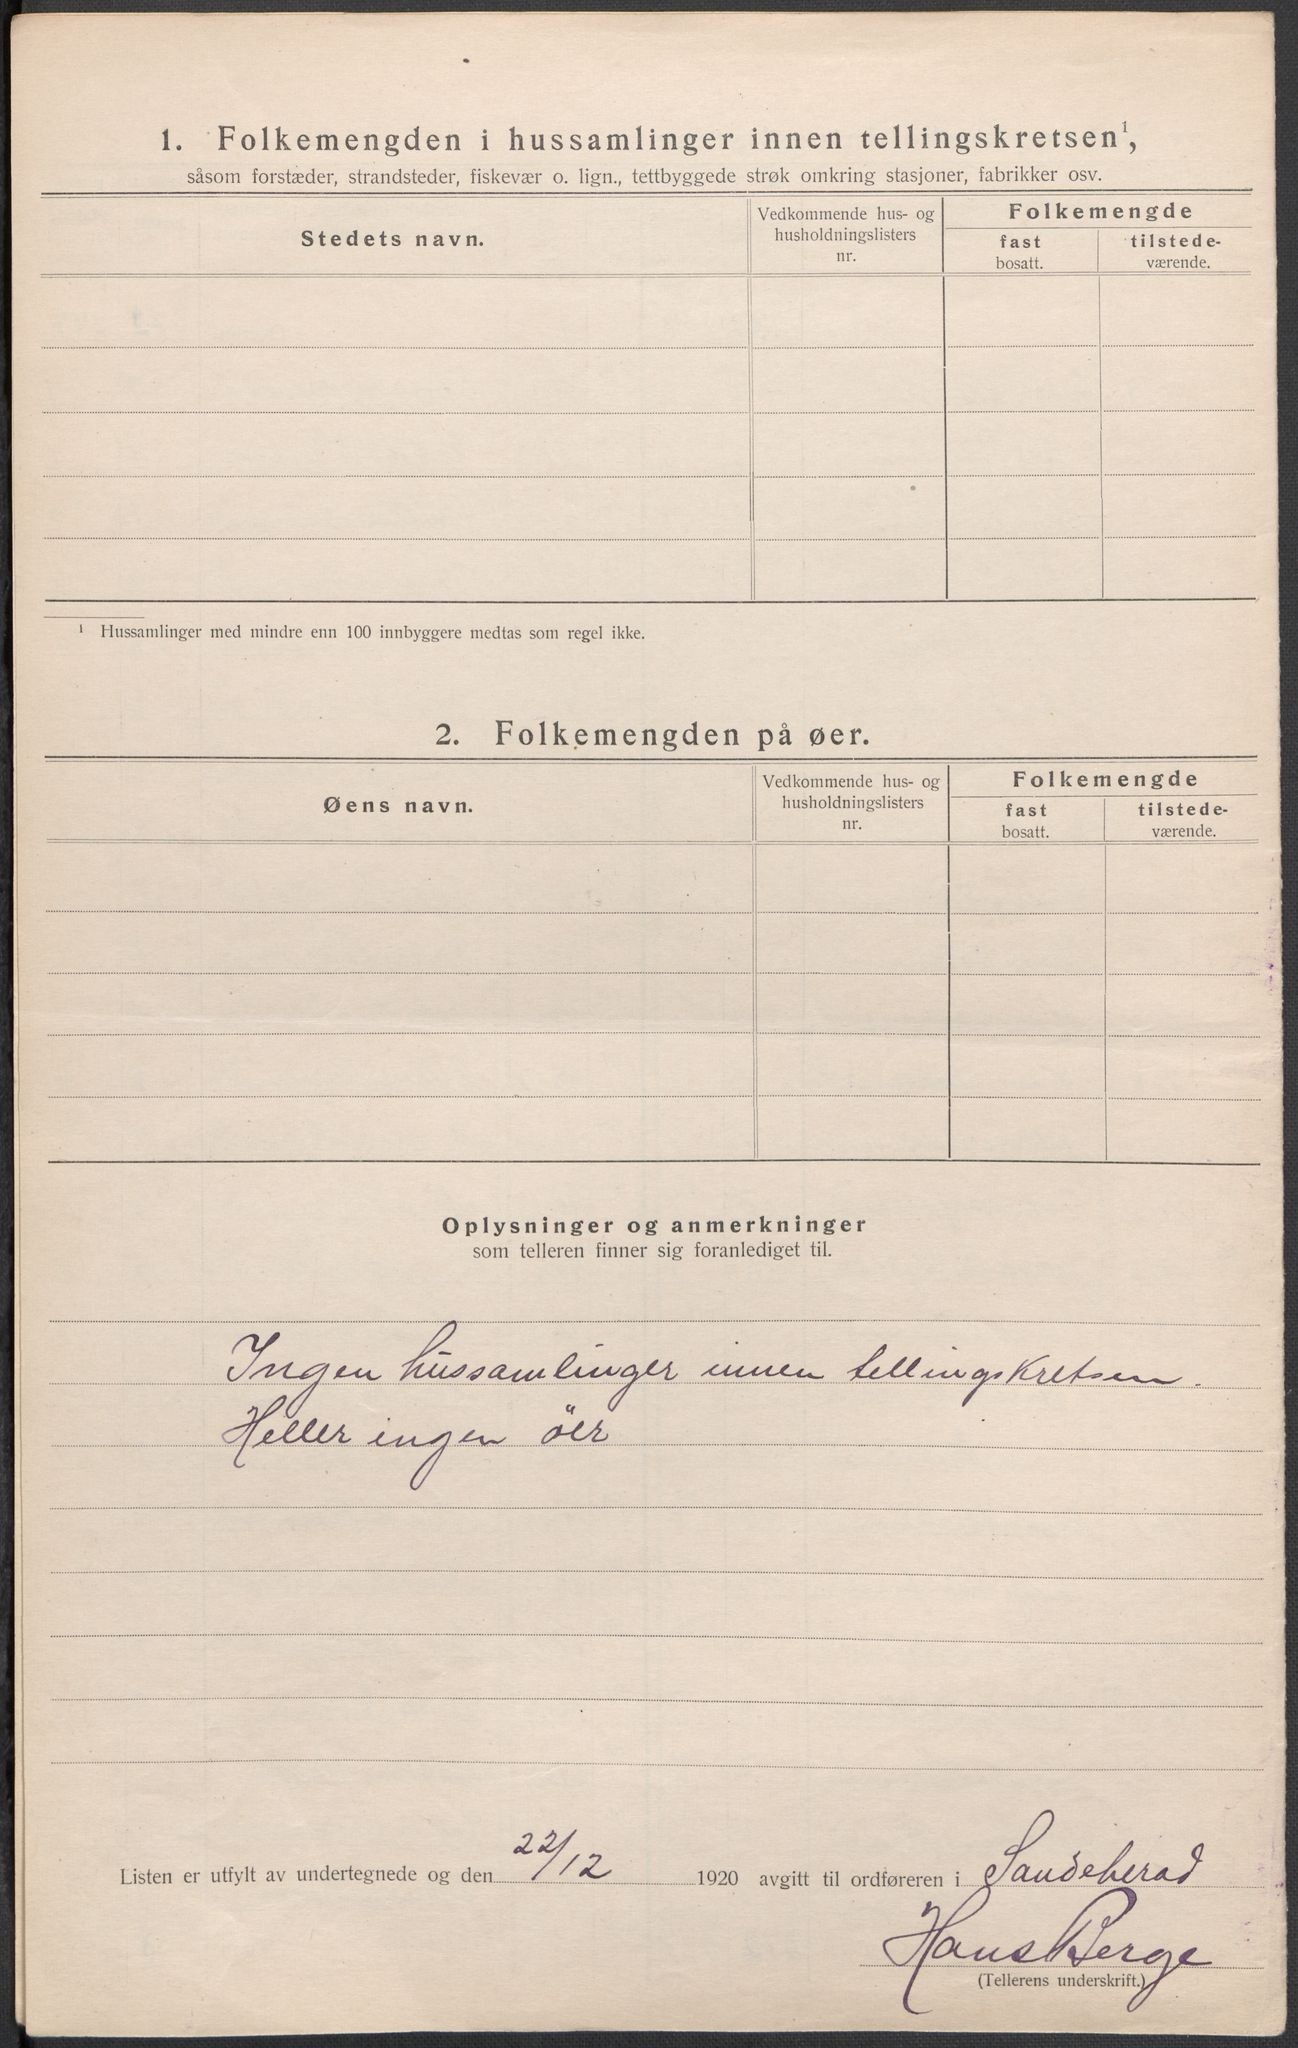 1. Folkemengden i hussamlinger innen tellingskretsen¹,
såsom forstæder, strandsteder, fiskevær o. lign., tettbyggede strøk omkring stasjoner, fabrikker osv.
Stedets navn.
Vedkommende hus- og
husholdningslisters
nr.
Folkemengde
fast
bosatt.
tilstede-
værende.
¹ Hussamlinger med mindre enn 100 innbyggere medtas som regel ikke.
2. Folkemengden på øer.
Øens navn.
Vedkommende hus- og
husholdningslisters
nr.
Folkemengde
fast
bosatt.
tilstede-
værende.
Oplysninger og anmerkninger
som telleren finner sig foranlediget til.
Ingen hussamlinger innen tellingskretsen.
Heller ingen öer
Listen er utfylt av undertegnede og den 22/12 1920 avgitt til ordføreren i Sandeherad
Hans Berge
(Tellerens underskrift.)